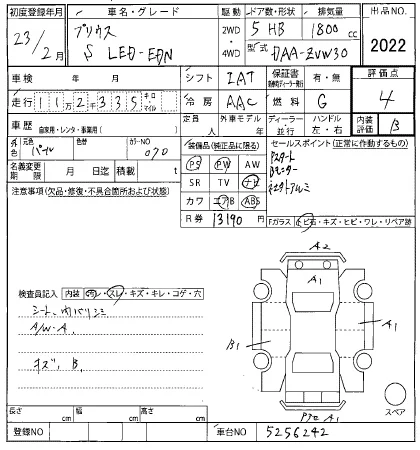 初度登録年月 車名・グレード 駆動 ドア数・形状 排気量 出品NO.
23/2月 プリウス S LED-EDN 2WD・4WD 5 HB 1800cc 2022
型式 DAA-ZVW30
車検 年 月 シフト IAT 保証書 有・無 評価点
走行 112千335 キロ・マイル 冷房 AAC 燃料 G 4
車歴 自家用・レンタ・事業用( ) 定員 人 外車モデル 年 ディーラー・並行 ハンドル 左・右 内装評価 B
外色 元色 パール 色替 カラーNO 070
装備品(純正品に限る) セールスポイント(正常に作動するもの)
名義変更期限 月 日迄 積載 t
PS PW AW Pスタート
SR TV ナビ Bモニター
カワ エアB ABS 社外アルミ
注意事項(欠品・修復・不具合箇所および状態)
R券 13190円 Fガラス トビ石・キズ・ヒビ・ワレ・リペア跡
A2
A1
検査員記入 内装 汚レ・スレ・キズ・キレ・コゲ・穴
シート、内バリシミ
A/W・A
キズ、B
B1
A1
A1
スペア
長さ cm 幅 cm 高さ cm
登録NO 車台NO 5256242